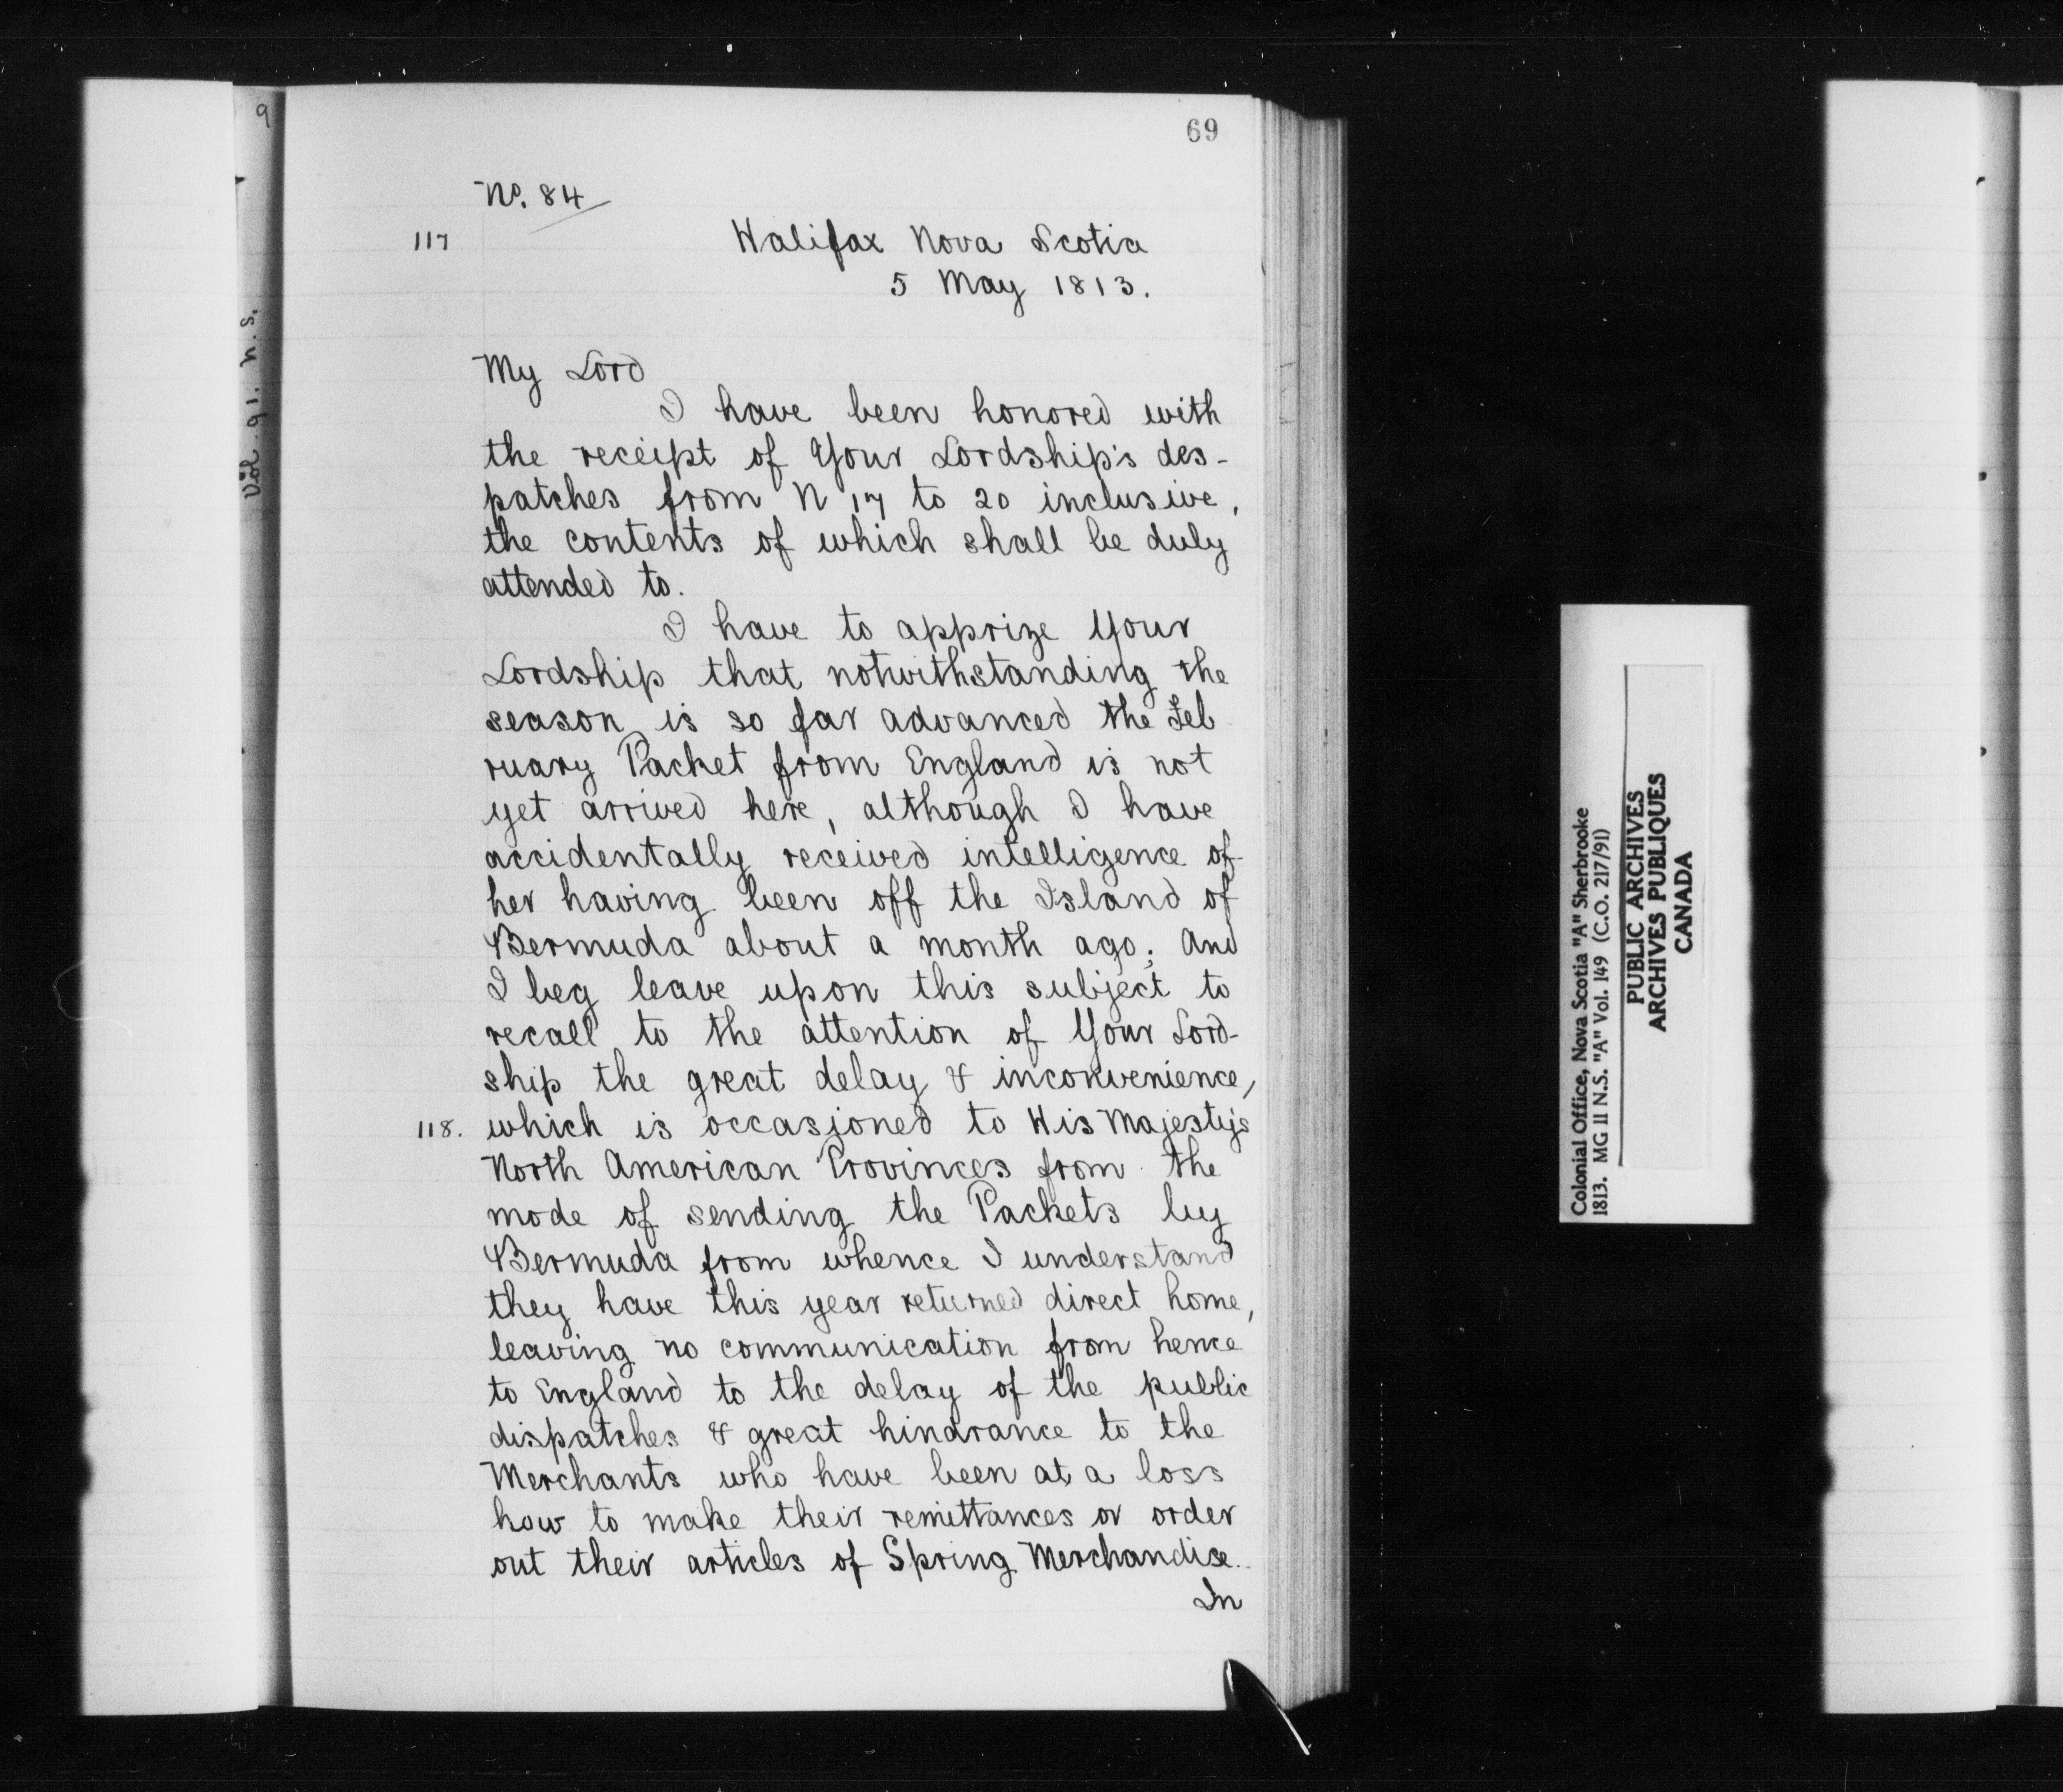 9
Vol. 91. N. S.
69
No. 84
117
Halifax Nova Scotia
5 May 1813.
My Lord
I have been honored with
the receipt of Your Lordship's des-
patches from N 17 to 20 inclusive,
the contents of which shall be duly
attended to.
I have to apprize Your
Lordship that notwithstanding the
season is so far advanced the Feb
ruary Packet from England is not
yet arrived here, although I have
accidentally received intelligence of
her having been off the Island of
Bermuda about a month ago; And
I beg leave upon this subject to
recall to the attention of Your Lord-
ship the great delay & inconvenience,
118. which is occasioned to His Majesty's
North American Provinces from the
mode of sending the Packets by
Bermuda from whence I understand
they have this year returned direct home,
leaving no communication from hence
to England to the delay of the public
dispatches & great hindrance to the
Merchants who have been at a loss
how to make their remittances or order
out their articles of Spring Merchandise.
In
Colonial Office, Nova Scotia "A" Sherbrooke
1813. MG 11 N.S. "A" Vol. 149 (C.O. 217/91)
PUBLIC ARCHIVES
ARCHIVES PUBLIQUES
CANADA